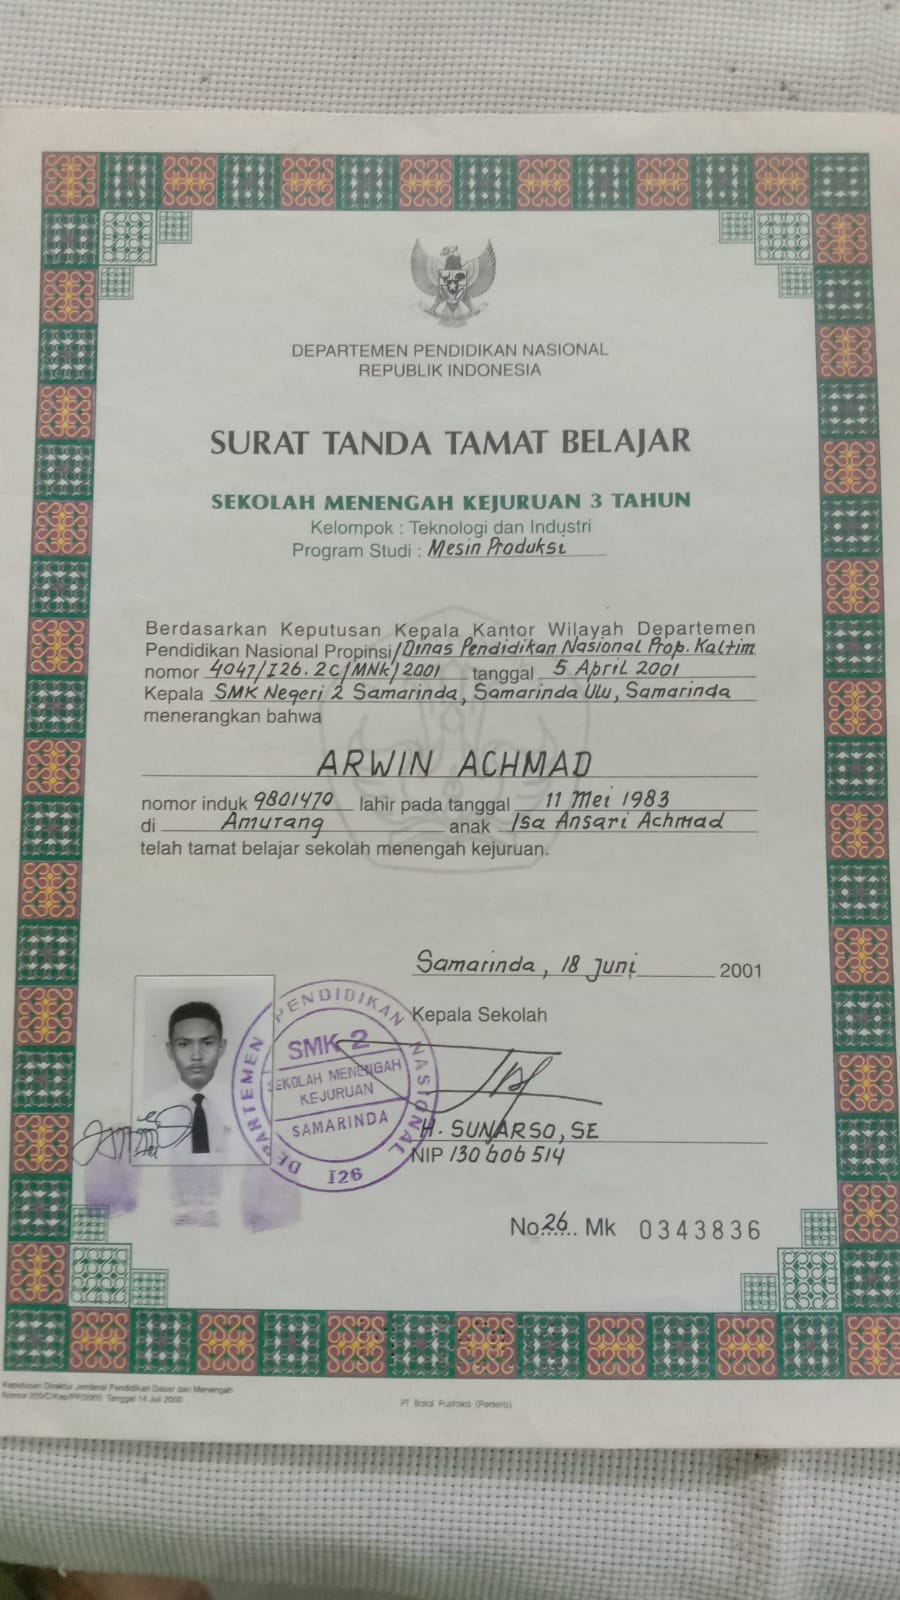 DEPARTEMEN PENDIDIKAN NASIONAL
REPUBLIK INDONESIA
SURAT TANDA TAMAT BELAJAR
SEKOLAH MENENGAH KEJURUAN 3 TAHUN
Kelompok : Teknologi dan Industri
Program Studi : Mesin Produksi
Berdasarkan Keputusan Kepala Kantor Wilayah Departemen
Pendidikan Nasional Propinsi/Dinas Pendidikan Nasional Prop. Kaltim
nomor 4047/I26.2C/MNk/2001 tanggal 5 April 2001
Kepala SMK Negeri 2 Samarinda, Samarinda Ulu, Samarinda
menerangkan bahwa
ARWIN ACHMAD
nomor induk 9801470 lahir pada tanggal 11 Mei 1983
di Amurang anak Isa Ansari Achmad
telah tamat belajar sekolah menengah kejuruan.
Samarinda, 18 Juni 2001
Kepala Sekolah
DEPARTEMEN PENDIDIKAN NASIONAL
SMK 2
SEKOLAH MENENGAH
KEJURUAN
SAMARINDA
I26
H. SUNARSO, SE
NIP 130 606 514
No. 26 Mk 0343836
Keputusan Direktur Jenderal Pendidikan Dasar dan Menengah
Nomor 205/C/Kep/PP/2000 Tanggal 14 Juli 2000
PT Balai Pustaka (Persero)